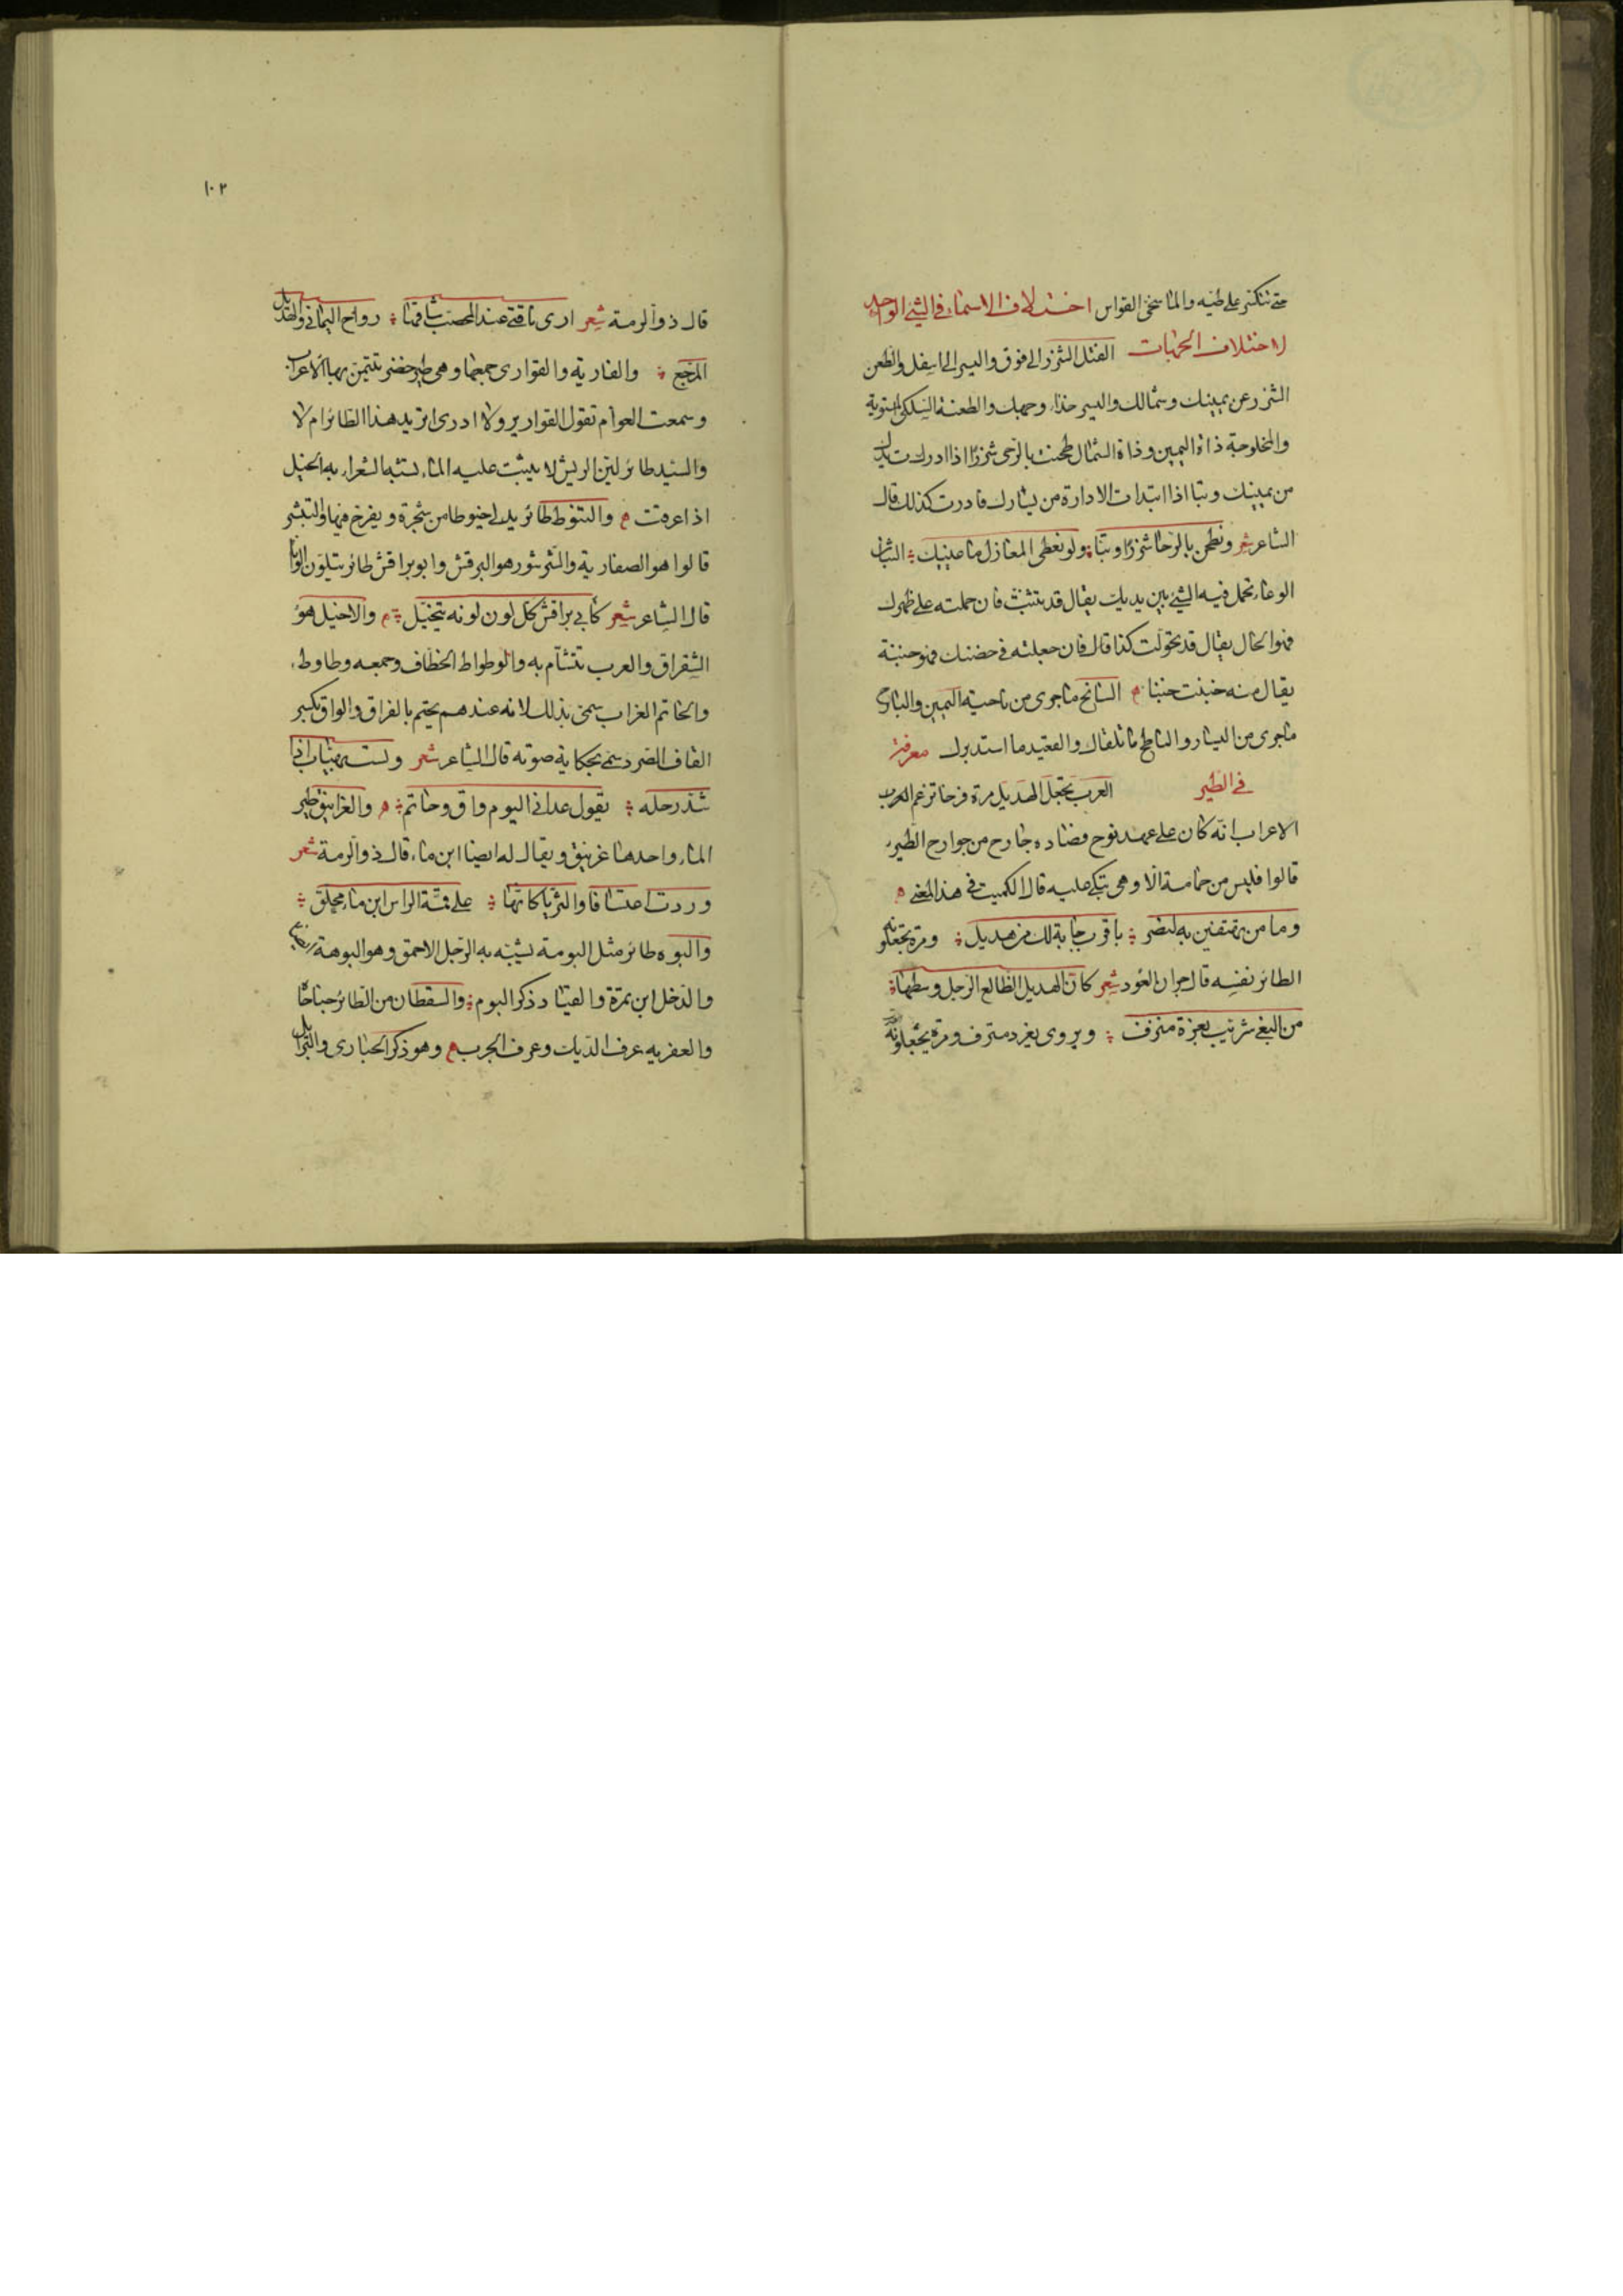 حتى تنكسر على طيه والماسخي القواس اختلاف الاسماء في الشئ الواحد
لاختلاف الجهات الفتل الشزر الى فوق واليسر الى اسفل والطعن
الشزر عن يمينك وشمالك واليسر حذاء وجهك والطعنة السلكى المستوية
والمخلوجة ذات اليمين وذات الشمال طحنت بالرحى شزرًا اذا ادرت يدك
من يمينك وبتا اذا ابتدات الادارة من يسارك فادرت كذلك قال
الشاعر شعر ونطحن بالرحا شزرًا وبتًا ولو نعطى المغازل ما عيينا الثبان
الوعاء تحمل فيه الشئ بين يديك يقال قد تثبنت فان حملته على ظهرك
فهو الحال يقال قد تحولت كذا قال فان جعلته في حضنك فهو خبنة
يقال منه خبنت خبنا السانح ما جرى من ناحية اليمين والبارح
ما جرى من اليسار والناطح ما تلقاك والقعيد ما استدبرك معرفة
في الطير العرب تجعل الهديل مرة فرخا تزعم العرب
الاعراب انه كان على عهد نوح فصاده جارح من جوارح الطير
قالوا فليس من حمامة الا وهى تبكى عليه قال الكميت في هذا المعنى
وما من تهتفين به لنصر باقرب جابة لك من هديل ومرة يجعلونه
الطائر نفسه قال جران العود شعر كان الهديل الظالع الرجل وسطها
من البغى شريب بغزة منزف ويروى يغرد مترف ومرة يجعلونه
١٠٢
قال ذو الرمة شعر ارى ناقتي عند المحصب شاقها رواح اليماني والهديل
المرجع والقارية والقوارى جمعها وهى طير خضر تتيمن بها الاعراب
وسمعت العوام تقول القوارير ولا ادرى اتريد هذا الطائر ام لا
والسبد طائر لين الريش لا يثبت عليه الماء تشبه الشعراء به الخيل
اذا عرقت والتنوط طائر يدلى خيوطا من شجرة ويفرخ فيها والتبشر
قالوا هو الصفارية والشرشور هو البرقش وابو براقش طائر يتلون الوانا
قال الشاعر شعر كأبي براقش كل لون لونه يتخيل والاخيل هو
الشقراق والعرب تتشأم به والوطواط الخطاف وجمعه وطاوط
والحاتم الغراب سمى بذلك لانه عندهم يحتم بالفراق والواق بكسر
القاف الصرد سمى بحكاية صوته قال الشاعر شعر ولست بهياب اذا
شد رحله يقول عداني اليوم واق وحاتم والغرانيق طير
الماء واحدها غرنيق ويقال له ايضا ابن ماء قال ذو الرمة شعر
وردت اعتسافا والثريا كانها على قمة الراس ابن ماء محلق
والبوه طائر مثل البومة يشبه به الرجل الاحمق وهو البوهة ايضا
والدخل ابن تمرة والفياد ذكر البوم والسقطان من الطائر جناحاه
والعفرية عرف الديك وعرف الخرب وهو ذكر الحبارى والبرائل